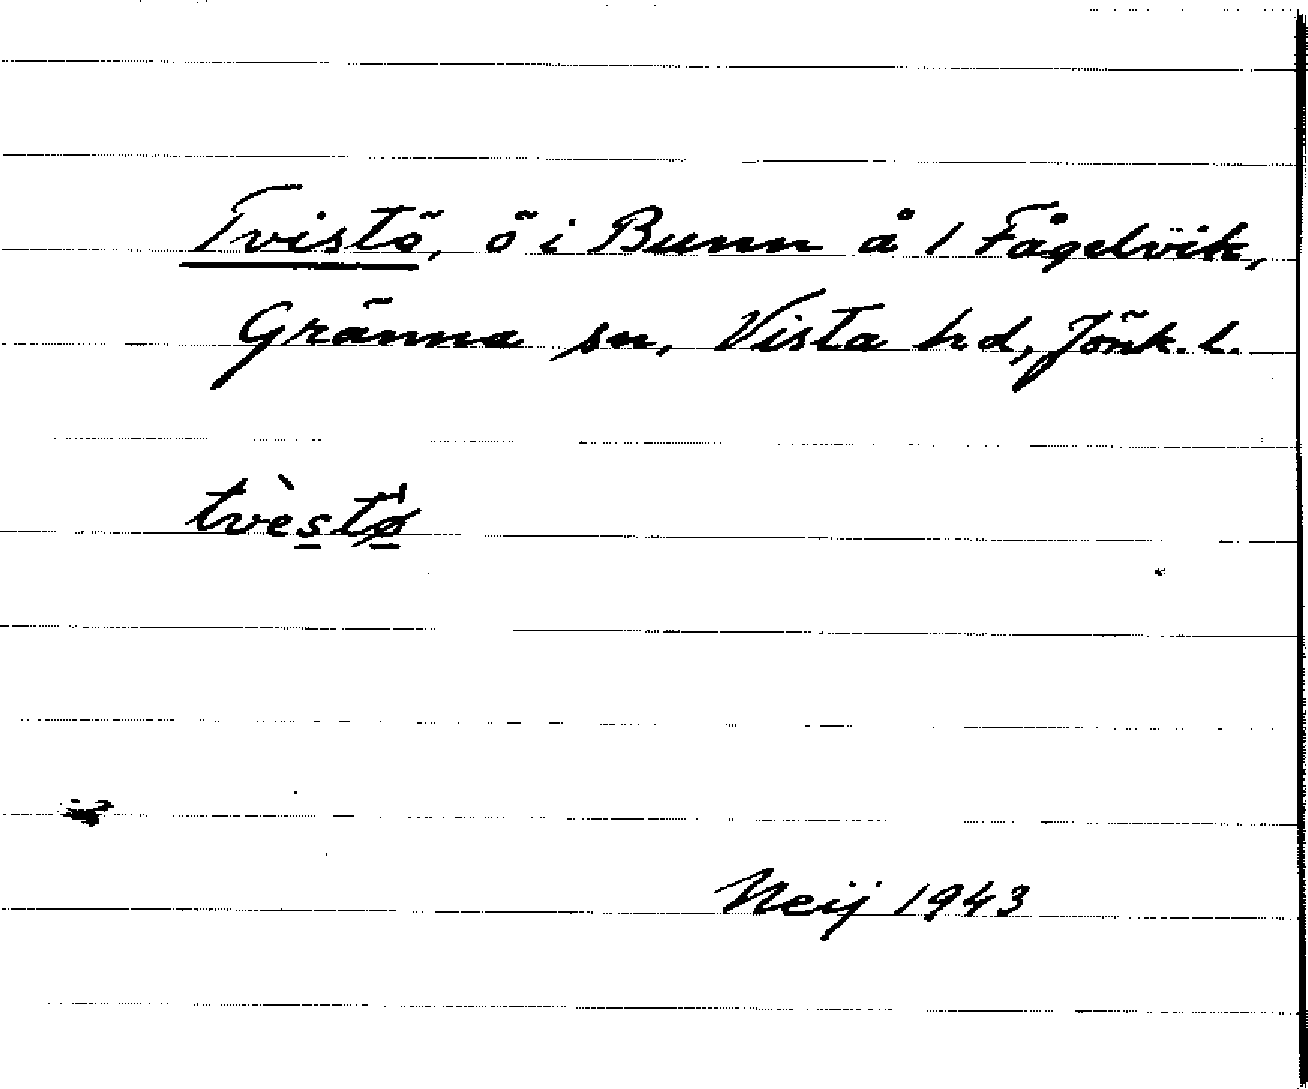 Tvistö, ö i Bunn å 1 Fågelvik,
Gränna sn, Vista hd, Jönk. l.
tvèstø
Neij 1943